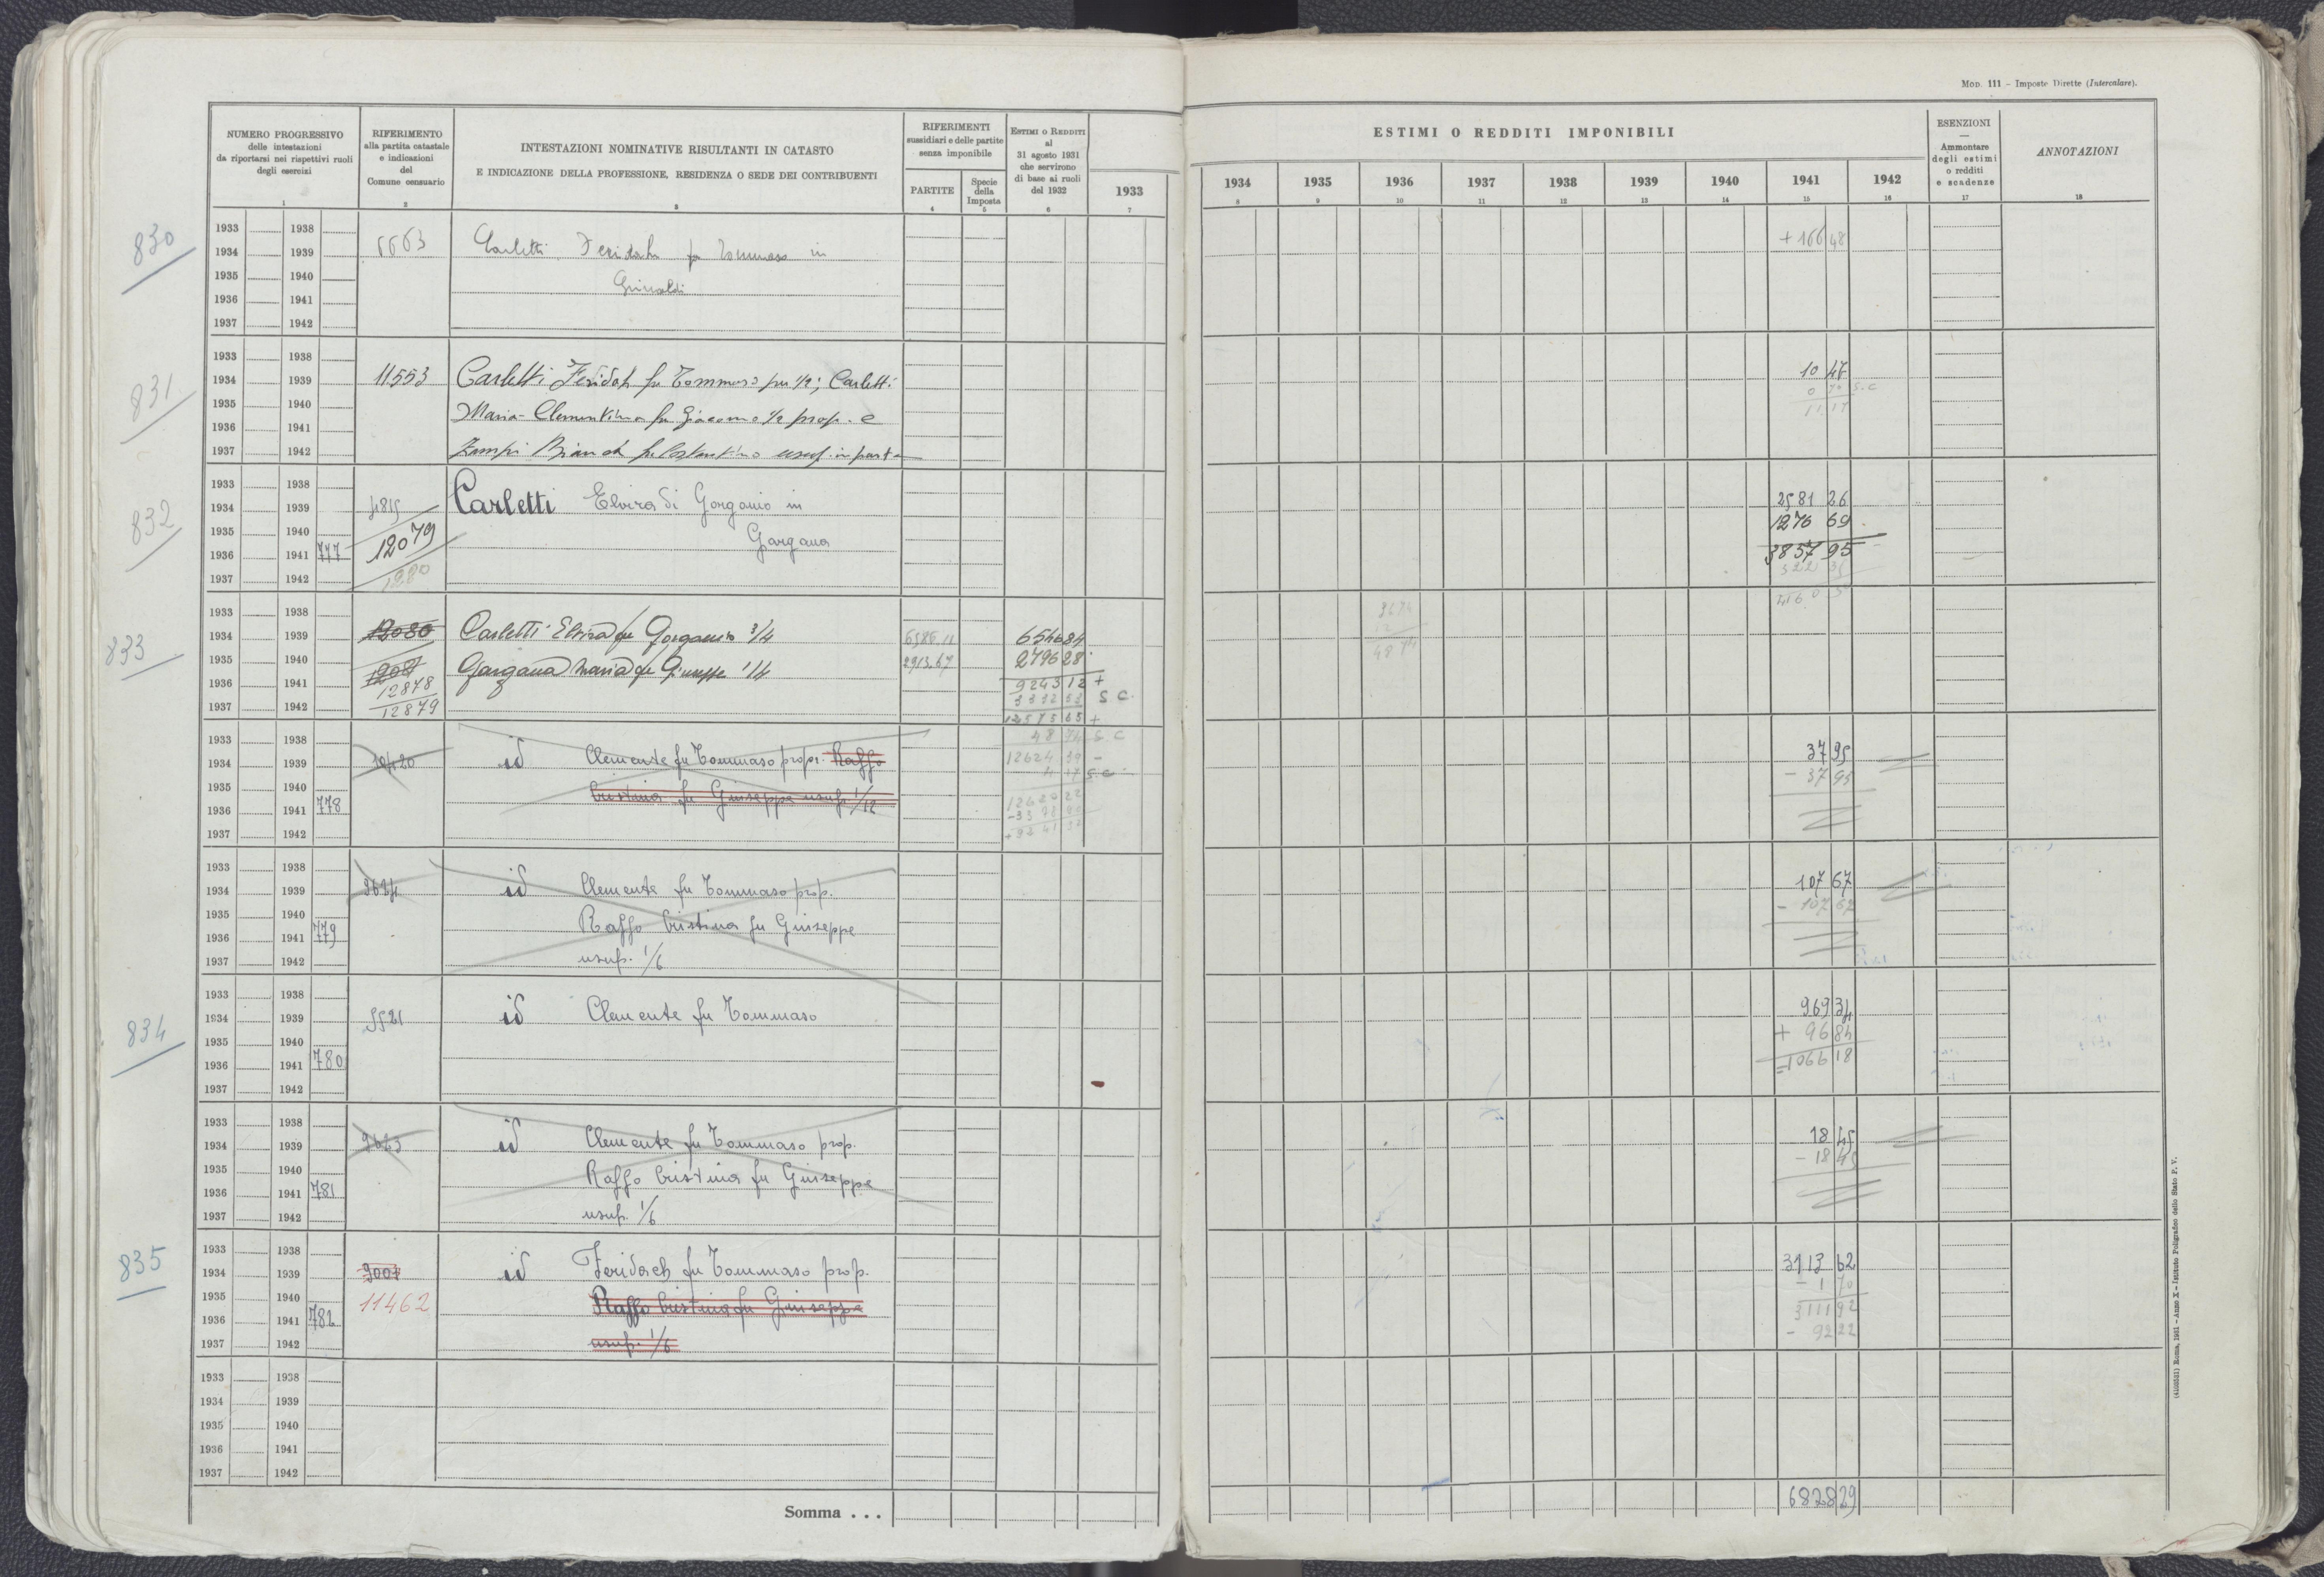 Mod. 111 – Imposte Dirette (Intercalare).
NUMERO PROGRESSIVO
delle intestazioni
da riportarsi nei rispettivi ruoli
degli esercizi
1
RIFERIMENTO
alla partita catastale
e indicazioni
del
Comune censuario
2
INTESTAZIONI NOMINATIVE RISULTANTI IN CATASTO
E INDICAZIONE DELLA PROFESSIONE, RESIDENZA O SEDE DEI CONTRIBUENTI
3
RIFERIMENTI
sussidiari e delle partite
senza imponibile
PARTITE
4
Specie
della
Imposta
5
ESTIMI O REDDITI
al
31 agosto 1931
che servirono
di base ai ruoli
del 1932
6
1933
7
ESTIMI O REDDITI IMPONIBILI
1934 1935 1936 1937 1938 1939 1940 1941 1942
8 9 10 11 12 13 14 15 16
ESENZIONI
—
Ammontare
degli estimi
o redditi
e scadenze
17
ANNOTAZIONI
18
830
1933 1938
1934 1939 6663 Carletti Feridah fu Tommaso in + 166 48
1935 1940
1936 1941 Grimaldi
1937 1942
831
1933 1938
1934 1939 11553 Carletti Feridah fu Tommaso per 1/2; Carletti 10 47
1935 1940 Maria Clementina fu Giacomo 1/2 prop. e 0 70 S.C
1936 1941 11 17
1937 1942 Zampi Bianch fu Costantino usuf. in parte
832
1933 1938
1934 1939 4815 Carletti Elvira di Gorgonio in 2581 26
1935 1940 12079 Gargana 1270 69
1936 1941 777 3857 95
1937 1942 1280
833
1933 1938
1934 1939 12080 Carletti Elvira fu Gorgonio 3/4 6546 84
1935 1940 Gargana Maria fu Giuseppe 1/4 2913.67 2796 28
1936 1941 12878 9243 12 +
1937 1942 12879 3332 53 S C
12575 65 +
48 74 S C
1933 1938
1934 1939 id Clemente fu Tommaso propr. Raffo 12624 39 37 95
1935 1940 Cristina fu Giuseppe usuf. 1/12 4 17 S.C - 37 95
1936 1941 778 12620 22
1937 1942
1933 1938
1934 1939 id Clemente fu Tommaso prop. 107 67
1935 1940 Raffo Cristina fu Giuseppe - 107 67
1936 1941 779
1937 1942 usuf. 1/6
834
1933 1938
1934 1939 5521 id Clemente fu Tommaso 969 34
1935 1940 + 96 84
1936 1941 780 = 1066 18
1937 1942
1933 1938
1934 1939 id Clemente fu Tommaso prop. 18 45
1935 1940 Raffo Cristina fu Giuseppe - 18 45
1936 1941 781
1937 1942 usuf. 1/6
835
1933 1938
1934 1939 9007 id Feridach fu Tommaso prop. 3113 62
1935 1940 11462 Raffo Cristina fu Giuseppe - 1 70
1936 1941 782 3111 92
1937 1942 usuf. 1/6 - 92 22
1933 1938
1934 1939
1935 1940
1936 1941
1937 1942
Somma . . . 6828 29
(4100531) Roma, 1931 – Anno X – Istituto Poligrafico dello Stato P. V.